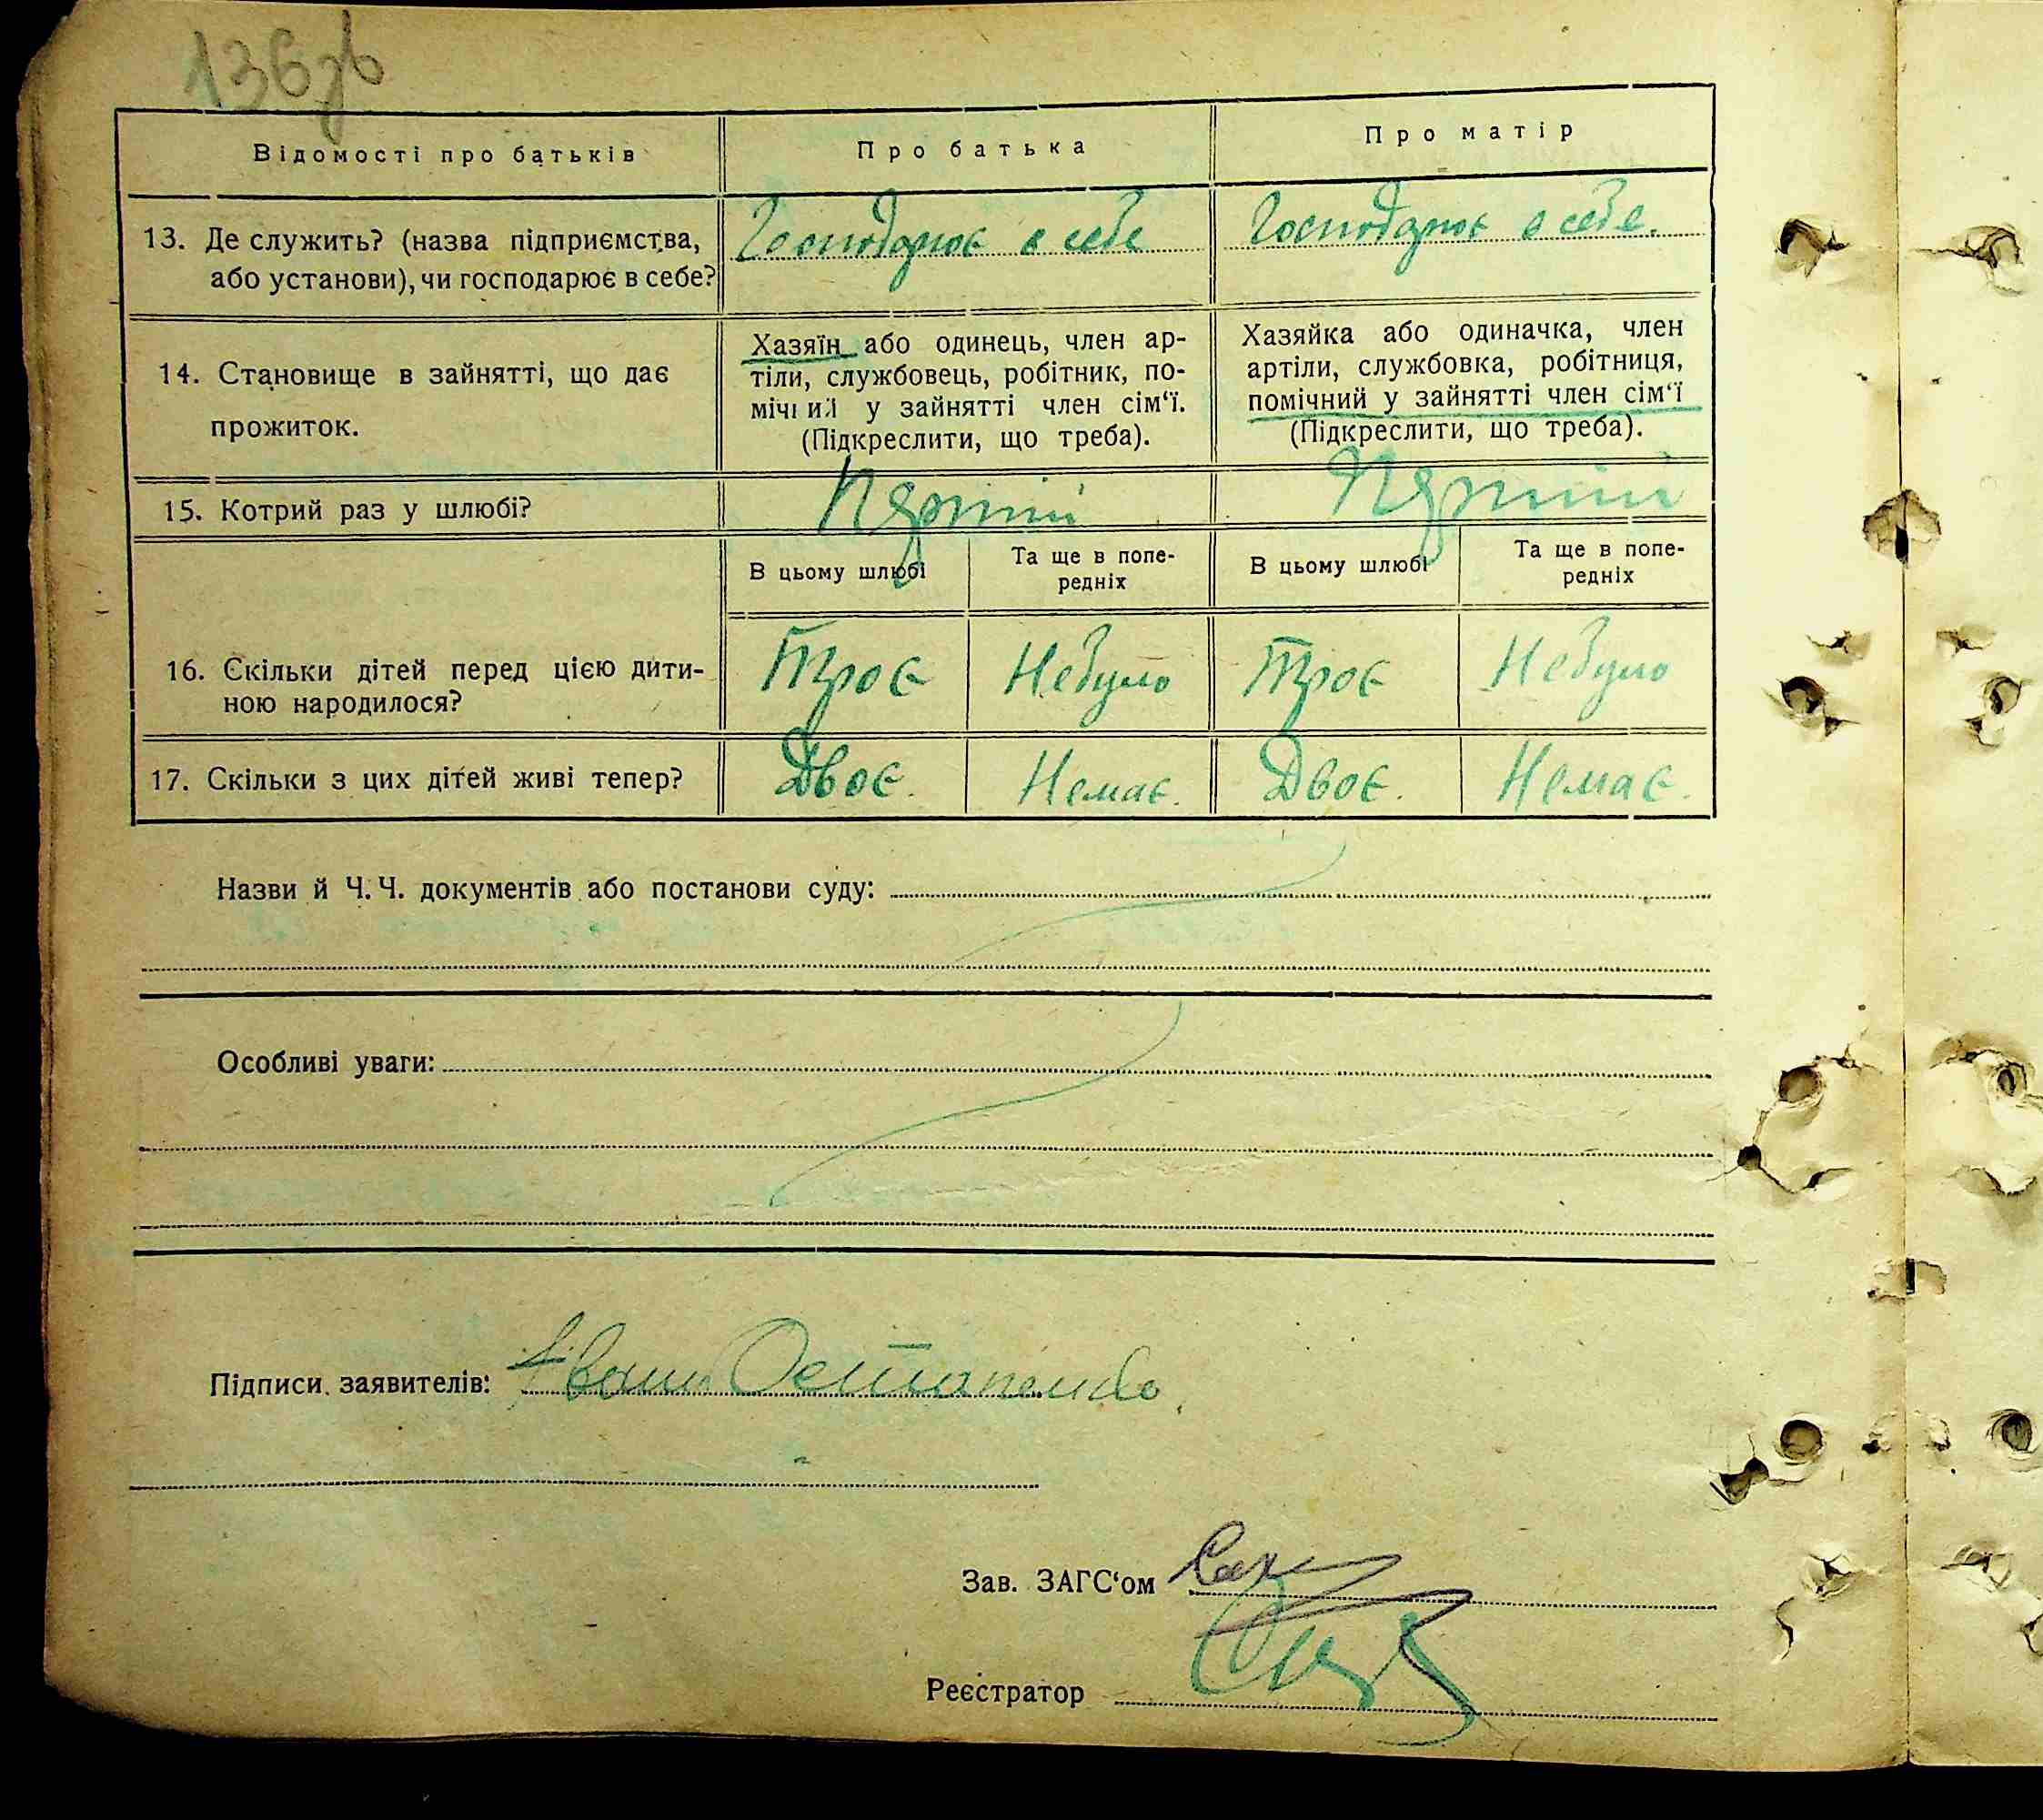 136зв
Відомості про батьків
Про батька
Про матір
13. Де служить? (назва підприємства,
або установи), чи господарює в себе?
Господарює в себе
Господарює в себе.
14. Становище в зайнятті, що дає
прожиток.
Хазяїн або одинець, член ар-
тіли, службовець, робітник, по-
мічний у зайнятті член сім‘ї.
(Підкреслити, що треба).
Хазяйка або одиначка, член
артіли, службовка, робітниця,
помічний у зайнятті член сім‘ї
(Підкреслити, що треба).
15. Котрий раз у шлюбі?
В цьому шлюбі
Та ще в попе-
редніх
В цьому шлюбі
Та ще в попе-
редніх
16. Скільки дітей перед цією дити-
ною народилося?
Троє
Небуло
Троє
Небуло
17. Скільки з цих дітей живі тепер?
Двоє.
Немає.
Двоє.
Немає.
Назви й Ч. Ч. документів або постанови суду:
Особливі уваги:
Підписи заявителів:
Зав. ЗАГС‘ом
Реєстратор